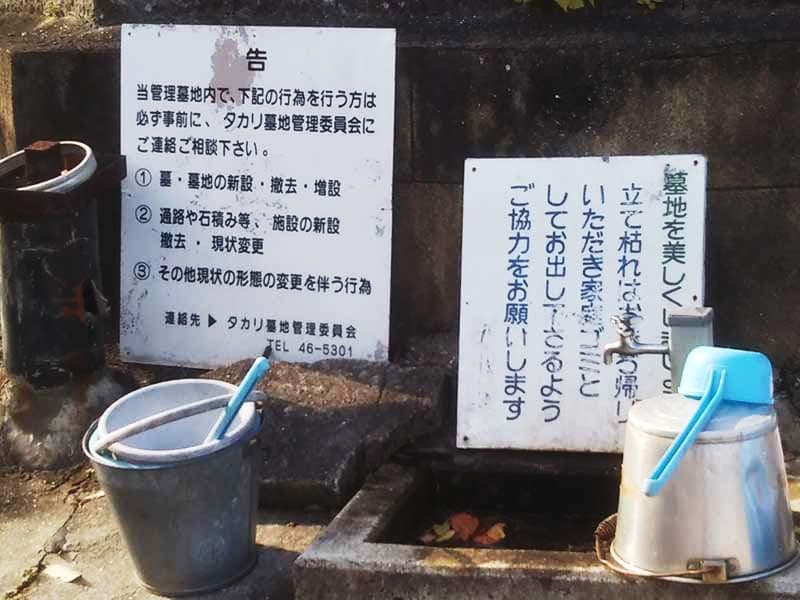 告
当管理墓地内で、下記の行為を行う方は
必ず事前に、タカリ墓地管理委員会に
ご連絡ご相談下さい。
① 墓・墓地の新設・撤去・増設
② 通路や石積み等、施設の新設
撤去・現状変更
③ その他現状の形態の変更を伴う行為
連絡先▶タカリ墓地管理委員会
TEL 46-5301
墓地を美しくしましょ
立て枯れはお 帰り
いただき家庭ごみと
してお出し下さるよう
ご協力をお願いします